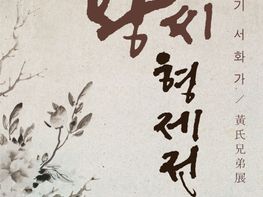 황씨
형제전
기 서화가 / 黃氏兄弟展